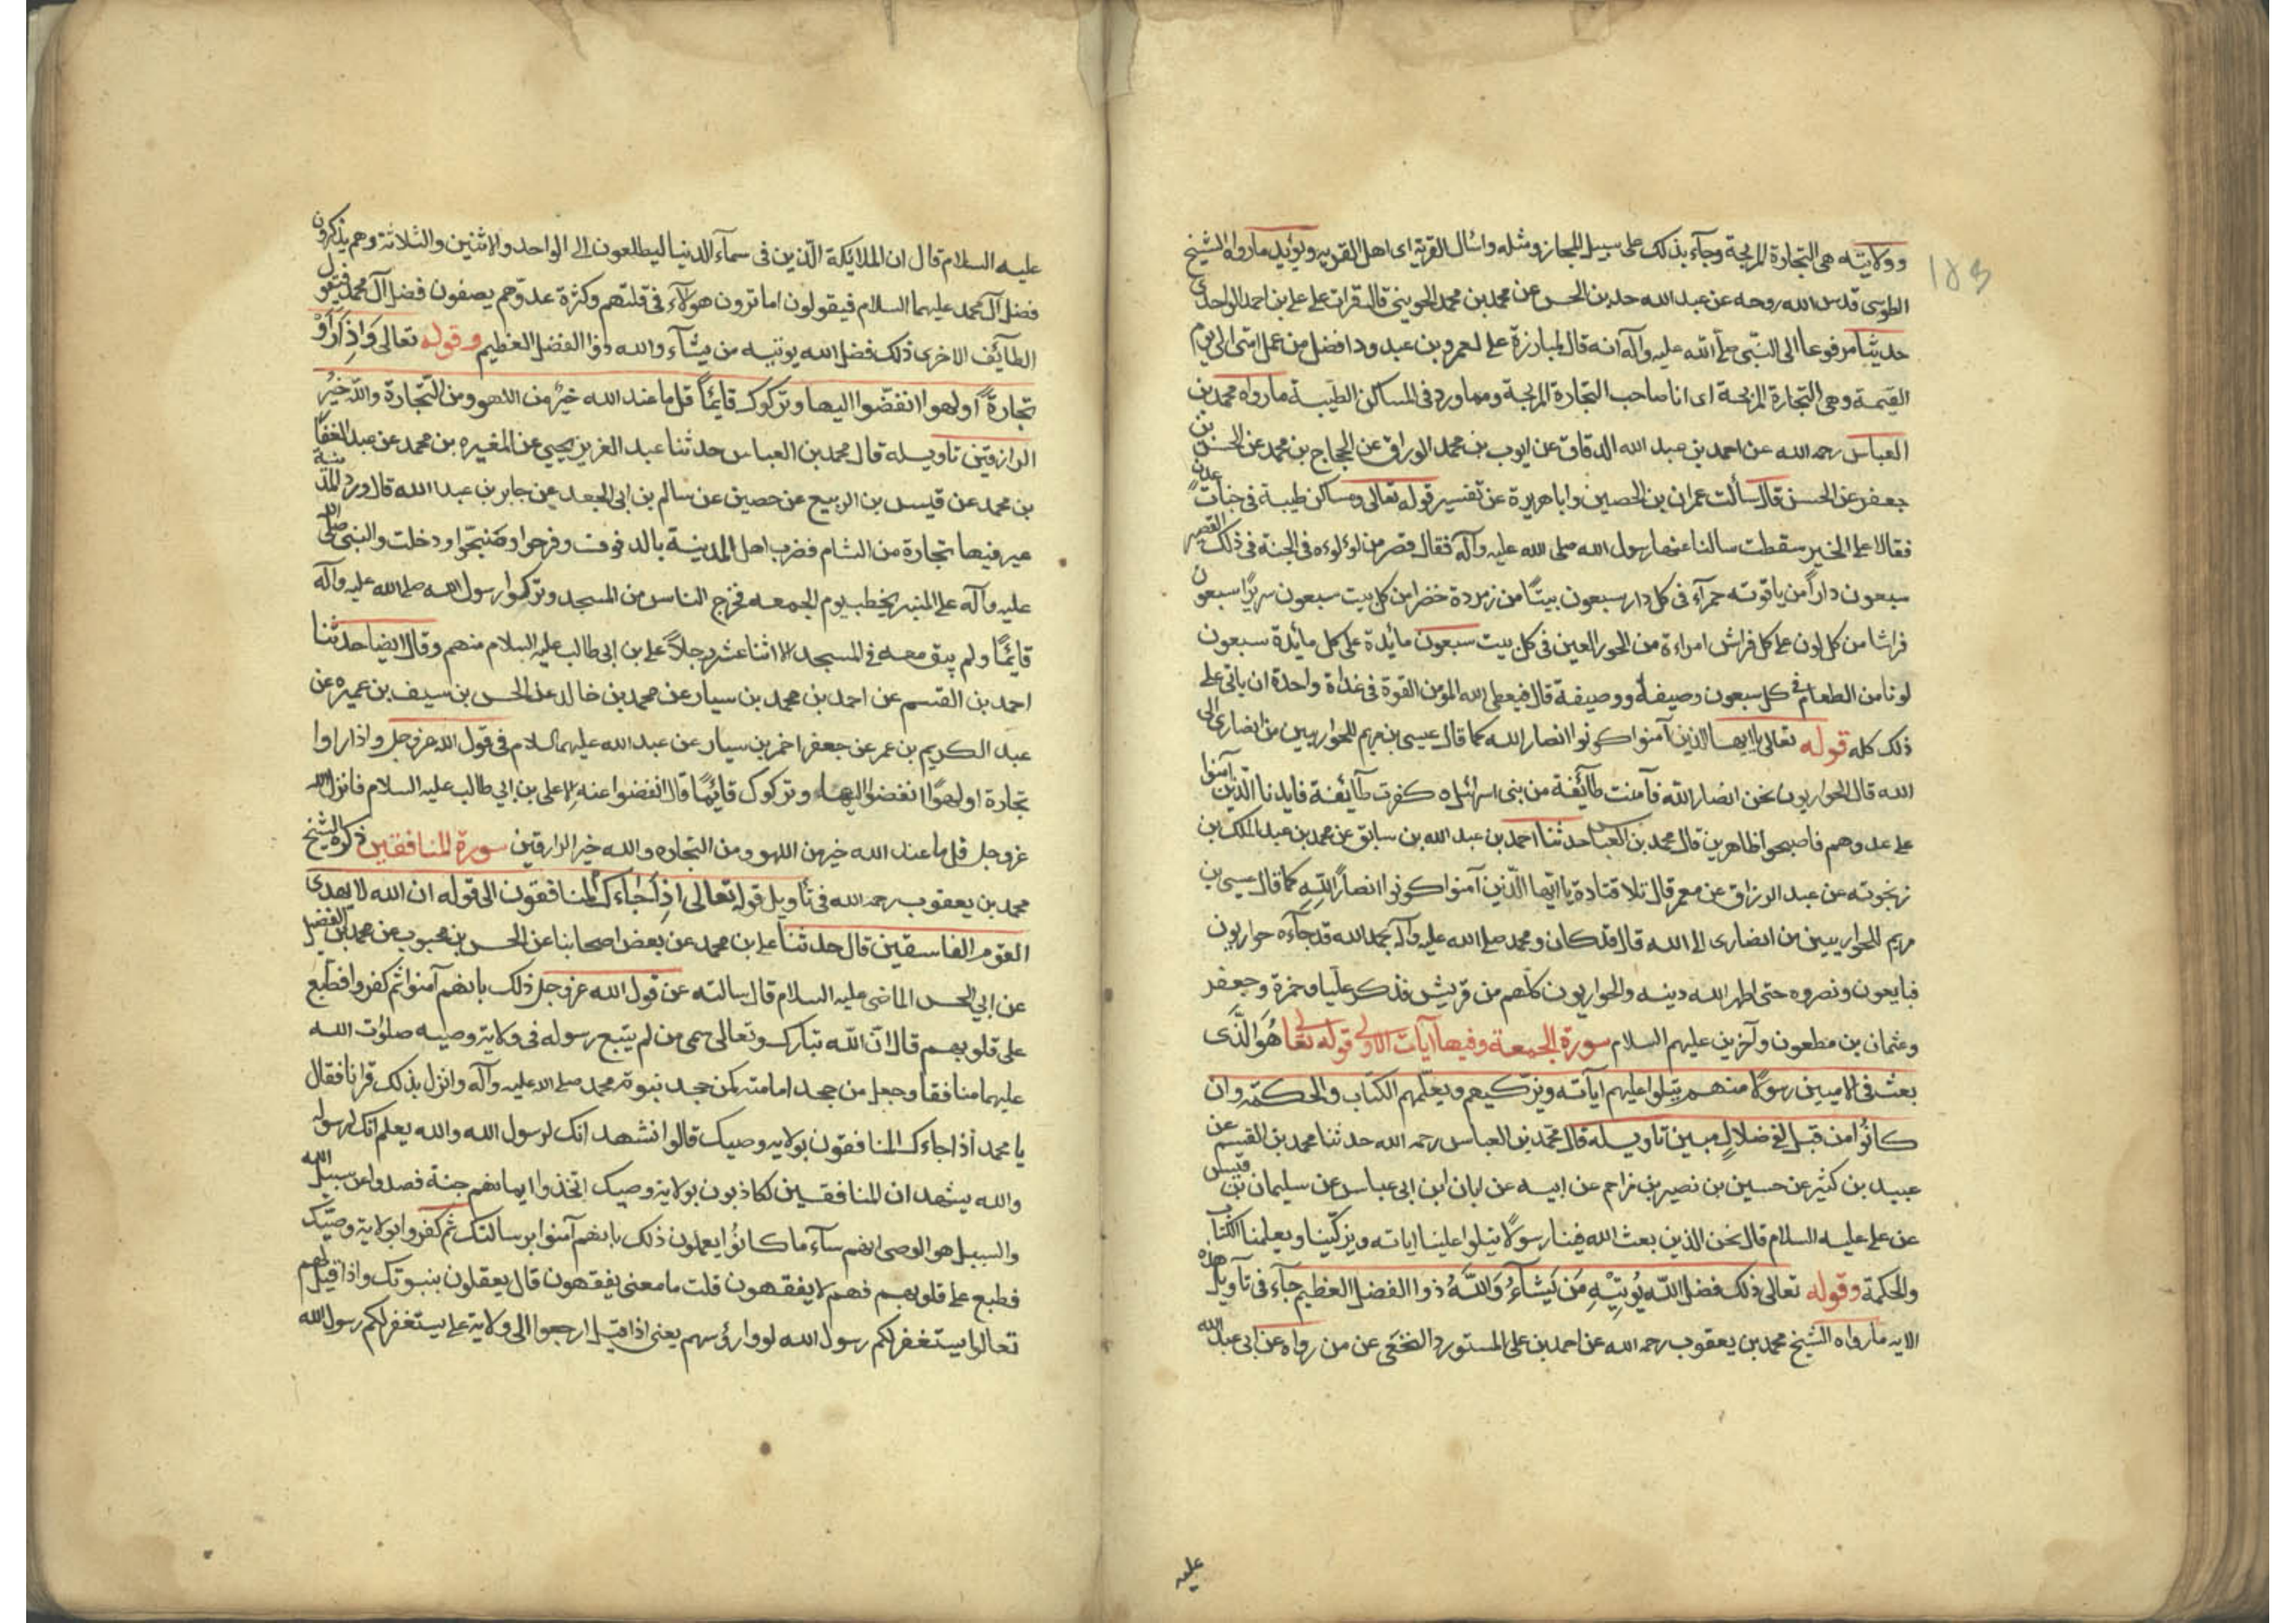 ١٨٣
وولايته هى التجارة المربحة وجآء بذلك على سبيل المجاز ومثله واسئال القرية اى اهل القريه ويؤيد ما رواه الشيخ
الطوسى قدس الله روحه عن عبد الله حد بن الحسن عن محمد بن محمد الجوينى قال قرات على على بن احمد الواحدى
حديثاً مرفوعاً الى النبى صلى الله عليه وآله انه قال لمبارزة على لعمرو بن عبد ود افضل من عمل امتى الى يوم
القيمة وهى التجارة المربحة اى انا صاحب التجارة المربحة ومما ورد فى المساكن الطيبة ما رواه محمد بن
العباس رحمه الله عن احمد بن عبد الله الدقاق عن ايوب بن محمد الوراق عن الحجاج بن محمد عن الحسن بن
جعفر عن الحسن قال سألت عمران بن الحصين وابا هريرة عن تفسير قوله تعالى ومساكن طيبة فى جنات عدن
فقالا على الخبير سقطت سالنا عنها رسول الله صلى الله عليه وآله فقال قصر من لوءلوءه فى الجنة فى ذلك القصر
سبعون داراً من ياقوته حمرآء فى كل دار سبعون بيتًا من زمردة خضرا من كل بيت سبعون سريرًا سبعون
فراشا من كل لون على كل فراش امراءة من الحور العين فى كل بيت سبعون مائدة على كل مائدة سبعون
لونا من الطعام فى كل سبعون وصيفة ووصيفة قال فيعطى الله المؤمن القوة فى غداة واحدة ان ياتى على
ذلك كله قوله تعالى يا ايها الذين آمنوا كونوا انصار الله كما قال عيسى بن مريم للحواريين من انصارى الى
الله قال الحواريون نحن انصار الله فآمنت طآئفة من بنى اسرائيل ه كفرت طآيفة فايدنا الذين آمنوا
على عدوهم فاصبحوا ظاهرين قال محمد بن العباس حدثنا احمد بن عبد الله بن سابق عن محمد بن عبد الملك بن
زنجوته عن عبد الرزاق عن معمر قال تلا قتادة يا ايها الذين آمنوا كونوا انصاراً لله كما قال عيسى بن
مريم للحواريين من انصارى الى الله قال قد كان ومحمد صلى الله عليه وآله بحمد الله قد جآءه حواريون
فبايعون ونصروه حتى اظهر الله دينه والحواريون كلهم من قريش فذكر عليا وحمزة وجعفر
وعثمان بن مظعون وآخرين عليهم السلام سورة الجمعة وفيها آيات الاولى قوله تعالى هُوَ الَّذى
بعث فى الاميين رسولًا منهم يتلوا عليهم آياته ويزكيهم ويعلمهم الكتاب والحكمة وان
كانُوا من قبل لفى ضلالٍ مبين تاويله قال محمد بن العباس رحمه الله حدثنا محمد بن القسم عن
عبيد بن كثير عن حسين بن نصير بن مزاحم عن ابيه عن ابان ابن ابى عباس عن سليمان بن قيس
عن على عليه السلام قال نحن الذين بعث الله فينا رسولًا يتلوا علينا اياته ويزكينا ويعلمنا الكتاب
والحكمة وقوله تعالى ذلك فضل الله يُوتِيْهِ مَن يَشآءُ وَاللهُ ذوا الفضل العظيم جآء فى تآويل هذه
الايه ما رواه الشيخ محمد بن يعقوب رحمه الله عن احمد بن على المستورد النخعى عن من رواه عن ابى عبد الله
عليه
عليه السلام قال ان الملايكة الذين فى سمآء الدنيا ليطلعون الى الواحد والاثنين والثلاثة وهم يذكرون
فضل آل محمد عليهما السلام فيقولون اما ترون هولآء فى قلتهم وكثرة عدوهم يصفون فضل آل محمد فتقول
الطآيف الاخرى ذلك فضل الله يوتيه من يشآء والله ذوا الفضل العظيم وقوله تعالى وَاِذِ رَآوْ
تجارةً اولهوا انفضّوا اليها وتركوك قايماً قل ما عند الله خيرٌ من اللهو ومن التجارة والله خيرُ
الرازقين تاويله قال محمد بن العباس حدثنا عبد العزيز بن يحيى عن المغيره بن محمد عن عبد الغفار
بن محمد عن قيس بن الربيع عن حصين عن سالم بن ابى الجعد عن جابر بن عبد الله قال ورد المدينة
عير فيها تجارة من الشام فضرب اهل المدينة بالدفوف وفرحوا وضبحّوا ودخلت والنبى صلى الله
عليه وآله على المنبر يخطب يوم الجمعه فخرج الناس من المسجد وتركوا رسول الله صلى الله عليه وآله
قائمًا ولم يبق معه فى المسجد الا اثنا عشر رجلاً على بن ابى طالب عليه السلام منهم وقال ايضا حدثنا
احمد بن القسم عن احمد بن محمد بن سيار عن محمد بن خالد عن الحسن بن سيف بن عميره عن
عبد الكريم بن عمر عن جعفر احمر بن سيار عن عبد الله عليهما السلام فى قول الله عز وجل واذا راوا
تجارة اولهوًا انفضوا اليهاء وتركوك قايمًا قال انفضوا عنه الا على بن ابى طالب عليه السلام فانزل الله
عز وجل قل ما عند الله خير من اللهو ومن التجاره والله خير الرازقين سورة المنافقين ذكره الشيخ
محمد بن يعقوب رحمه الله فى تأويل قوله تعالى اذا جآءك المنافقون الى قوله ان الله لا يهدى
القوم الفاسقين قال حدثنا على بن محمد عن بعض اصحابنا عن الحسن بن محبوب عن محمد بن الفضيل
عن ابى الحسن الماضى عليه السلام قال سالته عن قول الله عز وجل ذلك بانهم آمنوا ثم كفروا فطبع
على قلوبهم قال انّ الله تبارك وتعالى سمى من لم يتبع رسوله فى ولاية وصيه صلوات الله
عليهما منافقا وجعل من جحد امامته كمن جحد نبوته محمد صلى الله عليه وآله وانزل بذلك قرانا فقال
يا محمد أذا جاءك المنافقون بولايه وصيك قالوا نشهد انك لرسول الله والله يعلم انك لرسوله
والله يشهد ان المنافقين لكاذبون بولاية وصيك اتخذوا ايمانهم جنة فصدوا عن سبيل الله
والسبيل هو الوصى انهم سآء ما كانُوا يعملون ذلك بانهم آمنوا برسالتك ثم كفروا بولاية وصيّك
فطبع على قلوبهم فهم لا يفقهون قلت ما معنى يفقهون قال يعقلون بنبوتك واذا قيل لهم
تعالوا يستغفر لكم رسول الله لووا رؤسهم يعنى اذا قيل ارجعوا الى ولاية على يستغفر لكم رسول الله